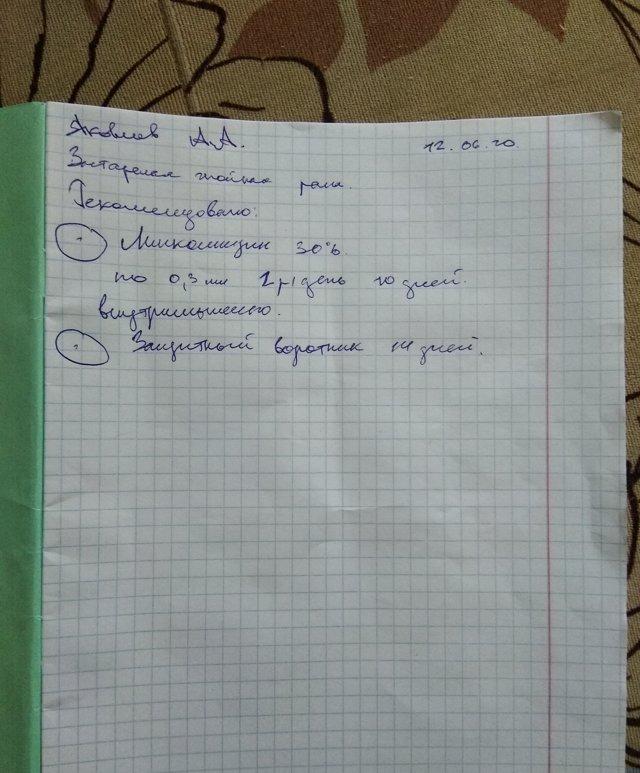 Яковлев А.А. 12.06.20.
Застарелая гнойная рана.
Рекомендовано:
Линкомицин 30%
по 0,3 мл 1 р/день 10 дней.
внутримышечно.
Защитный воротник 14 дней.